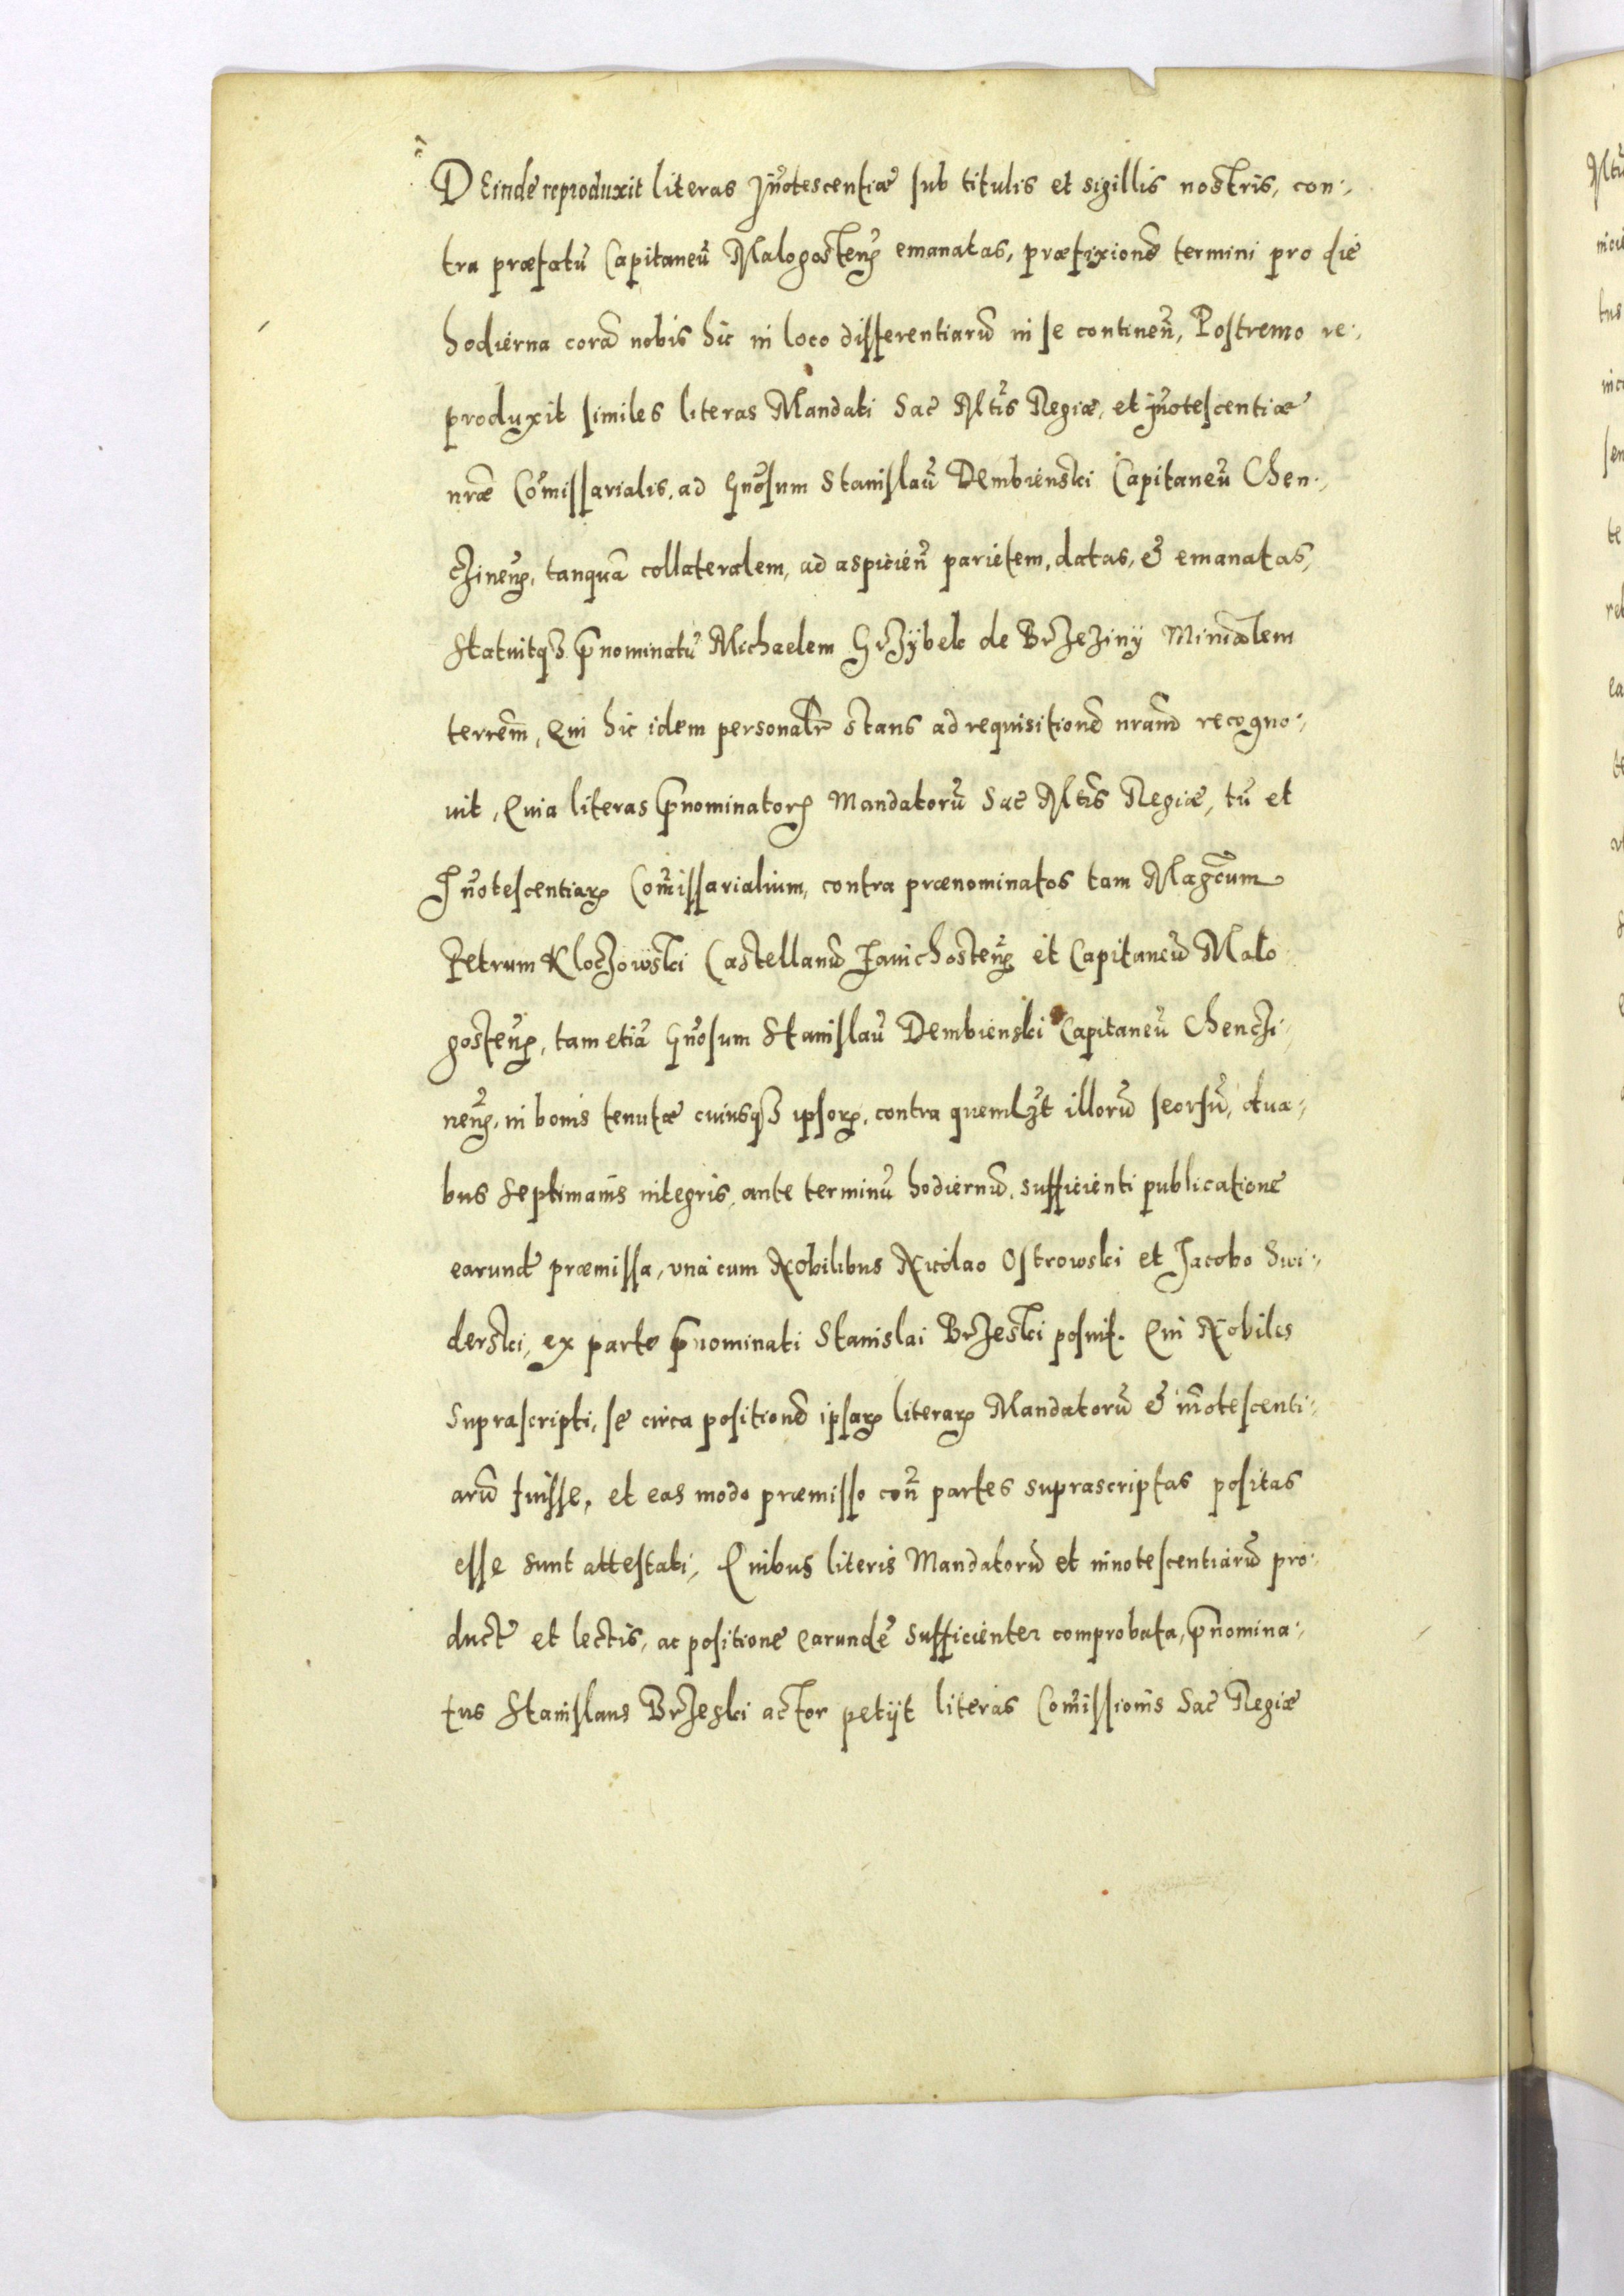 DEinde reproduxit literas Iñotescentiæ sub titulis et sigillis nostris, con⸗
tra præfatū Capitaneū Malogosteñ emanatas, præfixionē termini pro die
hodierna corā nobis hic in loco differentiarū in se contineñ, Postremo re⸗
produxit similes literas Mandati Sac̃ Mltis Regiæ, et iñotescentiæ
nr̃æ Com̃issarialis, ad Gñosum Stanislaū Dembienski Capitaneū Chen⸗
czineñ, tanquā collateralem, ad aspicieñ parietem, datas, & emanatas,
Statuitqꝫ p̃nominatū Michaelem Grzybek de Brzeziny Minr̃alem
terrem̃, Qui hic idem personalr̃ stans ad requisitionē nr̃am̃ recogno⸗
uit, Quia literas p̃nominatorꝝ Mandatorū Sac̃ Mltis Regiæ, tū et
Iñotescentiarꝝ Com̃issarialium, contra prænominatos tam Magcũm
Petrum Kloczowski Castellanū Zauichosteñ et Capitaneū Malo⸗
gosteñ, tam etiā Gñosum Stanislaū Dembienski Capitaneū Chenczi⸗
neñ, in bonis tenutæ cuiusqꝫ ipsorꝝ, contra quemlꝫt illorū seorsū, dua⸗
bus Septimanis integris, ante terminū hodiernū, sufficienti publicatione
earundē præmissa, vna cum Nobilibus Nicolao Ostrowski et Jacobo Swi⸗
derski, ex parte p̃nominati Stanislai Brzeski posuit. Qui Nobiles
Suprascripti, se circa positionē ipsarꝝ literarꝝ Mandatorū & iñotescenti⸗
arū fuisse, et eas modo præmisso coñ partes suprascriptas positas
esse sunt attestati, Quibus literis Mandatorū et innotescentiarū pro⸗
duct̃ et lectis, ac positione earundē sufficienter comprobata, p̃nomina⸗
tus Stanislaus Brzeski actor petijt literas Com̃issionis Sac̃ Regiæ